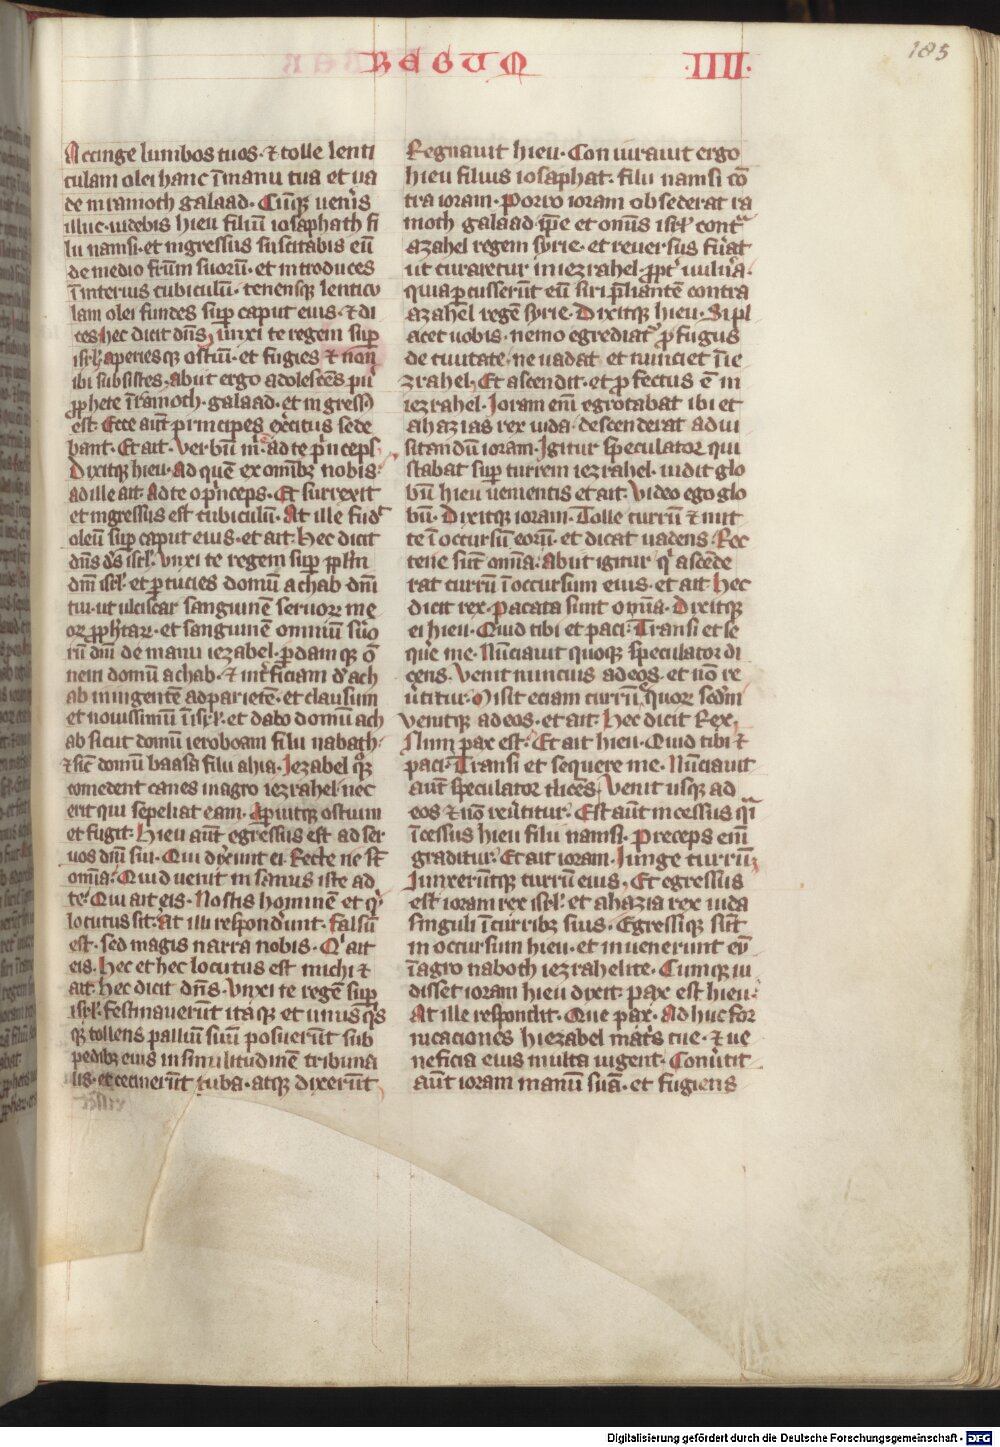 REGUM ·IIII·
185
Accinge lumbos tuos· ⁊ tolle lenti
culam olei hanc ī manu tua et ua
de in ramoth galaad· Cūq̄ ueneris
illuc· uidebis hieu filiū iosaphath fi
lii namsi· et ingressus suscitabis eū
de medio frūm suorū· et introduces
ī interius cubiculū· tenensq̄ lenticu
lam olei fundes sup̄ caput eius· ⁊ di
ces hec dicit dn̄s, unxi te regem sup̄
isrl̄· aperiesq̄ ostiū· et fugies ⁊ non
ibi subsistes, abiit ergo adolescēs pu
p̄phete ī ramoth· galaad· et ingressꝰ
est· Ecce aūt principes exc̄itus sede
bant· Et ait· Verbū m̄· ad te p̄nceps
Dixitq̄ hieu· Ad quē ex omībꝫ nobis·
ad ille ait· Ad te o p̄nceps· Et surrexit
et ingressus est cubiculū· At ille fud᷑
oleū sup̄ caput eius· et ait· Hec dicit
dn̄s d̄s isrl̄· Vnxi te regem sup̄ pp̄lm
dn̄i isrl̄· et percucies domū achab dn̄i
tui· ut ulciscar sanguinē seruoꝝ me
oꝝ p̄phetaꝝ· et sanguinē omniū suo
rū dn̄i de manu iezabel· perdamq̄ ō
nem domū achab· ⁊ int̄ficiam d' ach
ab mingentē ad parietē· et clausum
et nouissimū ī isrl̄· et dabo domū ach
ab sicut domū ieroboam filii nabath·
⁊ sic̄ domū baasa filii ahia· Iezabel q̊ꝫ
comedent canes in agro iezrahel· nec
erit qui sepeliat eam· Aperuitq̄ ostium
et fugit· Hieu aūt egressus est ad ser
uos dn̄i sui· Qui dixerunt ei· Recte ne st̄
omīa· Quid uenit insanus iste ad
te· Qui ait eis· Nostis hominē et q̇
locutus sit· At illi responderunt· Falsū
est· sed magis narra nobis· Qⁱ ait
eis· Hec et hec locutus est michi ⁊
ait· Hec dicit dn̄s· Vnxi te regē sup̄
isrl̄· Festinauerūt itaq̄ et unusq̇s
q̄ tollens palliū suū posuerūt sub
pedibꝫ eius in similitudinē tribuna
lis· et cecinerūt tuba· atq̄ dixerūt
Regnauit hieu· Coniurauit ergo
hieu filius iosaphat· filii namsi cō
tra ioram· Porro ioram obsederat ra
moth galaad ip̄e et omīs isrl̄ contᵃ
azahel regem syrie· et reuersus fūat
ut curaretur in iezrahel· p̄pt̄ uulnera·
quia percusserūt eū siri p̄liantē contra
azahel regē syrie· Dixitq̄ hieu· Si pl
acet uobis· nemo egrediat᷑ profugus
de ciuitate· ne uadat et nunciet ī ie
zrahel, Et ascendit· et profectus ē in
iezrahel· Ioram enī egrotabat ibi et
ahazias rex iuda· descenderat ad ui
sitandū ioram· Igitur speculator qui
stabat sup̄ turrem iezrahel· uidit glo
bū hieu uenientis et ait· Video ego glo
bū· Dixitq̄ ioram· Tolle currū ⁊ mit
te ī occursū eorū· et dicat uadens· Rec
tene sūt omīa· abiit igitur qⁱ ascēde
rat currū ī occursum eius· et ait Hec
dicit rex· pacata sunt omīa· Dixitq̄
ei hieu· Quid tibi et paci· Transi et se
quere me· Nūciauit quoq̄ speculator di
cens· Venit nuncius ad eos· et nō re
ūtitur· Misit eciam currū equoꝝ scd̄m
Venitq̄ ad eos· et ait· Hec dicit Rex,
Num pax est· Et ait hieu· Quid tibi ⁊
paci· Transi et sequere me· Nūciauit
aūt speculator dicēs· Venit usq̄ ad
eos ⁊ nō reūtitur· Est aūt incessus qᵃi
īcessus hieu filii namsi· Preceps enī
graditur· Et ait ioram· Iunge currū·
Iunxerūtq̄ currū eius, Et egressus
est ioram rex isrl̄· et ahazia rex iuda
singuli ī curribꝫ suis· Egressiq̄ sūt
in occursum hieu· et inuenerunt eū
ī agro naboth iezrahelite· Cumq̄ ui
disset ioram hieu dixit· pax est hieu·
At ille respondit· Que pax· Adhuc for
nicaciones hiezabel mat̄s tue· ⁊ ue
neficia eius multa uigent· Conūtit
aūt ioram manū suā· et fugiens
Digitalisierung gefördert durch die Deutsche Forschungsgemeinschaft - DFG